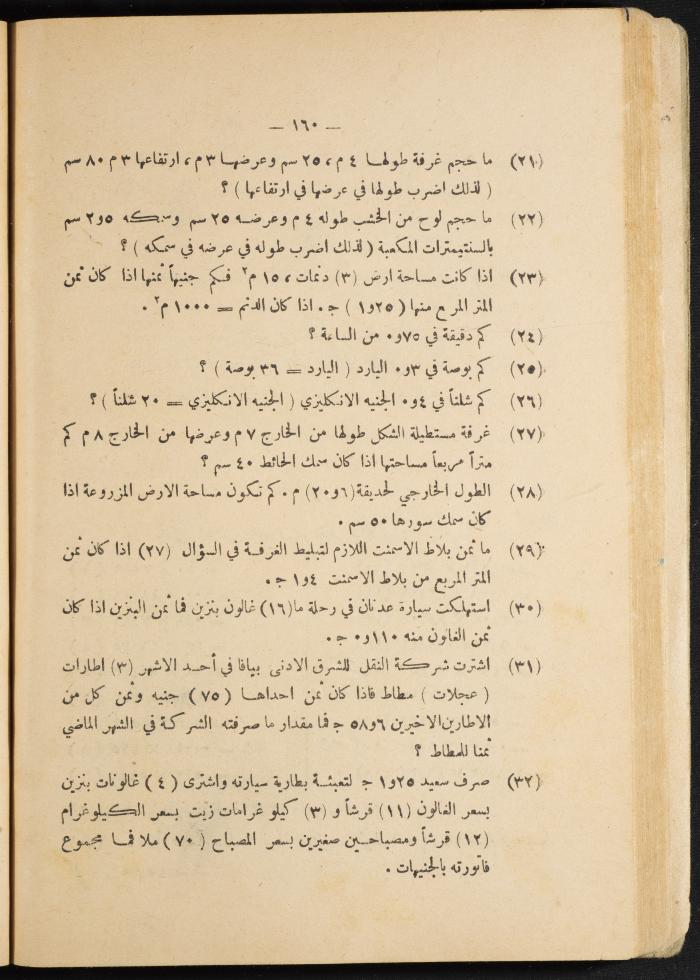 — ١٦٠ —
(٢١) ما حجم غرفة طولها ٤ م، ٢٥ سم وعرضها ٣ م، ارتفاعها ٣ م ٨٠ سم
( لذلك اضرب طولها في عرضها في ارتفاعها ) ؟
(٢٢) ما حجم لوح من الخشب طوله ٤ م وعرضه ٢٥ سم وسمكه ٥و٢ سم
بالسنتيمترات المكعبة ( لذلك اضرب طوله في عرضه في سمكه ) ؟
(٢٣) اذا كانت مساحة ارض (٣) دنمات، ١٥ م٢ فكم جنيهاً ثمنها اذا كان ثمن
المتر المربع منها ( ٢٥و١ ) ج. اذا كان الدنم = ١٠٠٠ م٢ .
(٢٤) كم دقيقة في ٧٥و٠ من الساعة ؟
(٢٥) كم بوصة في ٣و٠ اليارد ( اليارد = ٣٦ بوصة ) ؟
(٢٦) كم شلناً في ٤و٠ الجنيه الانكليزي ( الجنيه الانكليزي = ٢٠ شلناً ) ؟
(٢٧) غرفة مستطيلة الشكل طولها من الخارج ٧ م وعرضها من الخارج ٨ م كم
متراً مربعاً مساحتها اذا كان سمك الحائط ٤٠ سم ؟
(٢٨) الطول الخارجي لحديقة (٦و٢٠) م. كم تكون مساحة الارض المزروعة اذا
كان سمك سورها ٥٠ سم .
(٢٩) ما ثمن بلاط الاسمنت اللازم لتبليط الغرفة في السؤال (٢٧) اذا كان ثمن
المتر المربع من بلاط الاسمنت ٤و١ ج .
(٣٠) استهلكت سيارة عدنان في رحلة ما (١٦) غالون بنزين فما ثمن البنزين اذا كان
ثمن الغالون منه ١١٠و٠ ج .
(٣١) اشترت شركة النقل للشرق الادنى بيافا في أحد الاشهر (٣) اطارات
( عجلات ) مطاط فاذا كان ثمن احداها ( ٧٥ ) جنيه وثمن كل من
الاطارين الاخيرين ٦و٥٨ ج فما مقدار ما صرفته الشركة في الشهر الماضي
ثمنا للمطاط ؟
(٣٢) صرف سعيد ٢٥و١ ج لتعبئة بطارية سيارته واشترى ( ٤ ) غالونات بنزين
بسعر الغالون (١١) قرشاً و (٣) كيلو غرامات زيت بسعر الكيلوغرام
(١٢) قرشاً ومصباحين صغيرين بسعر المصباح ( ٧٠ ) ملا فما مجموع
فاتورته بالجنيهات .